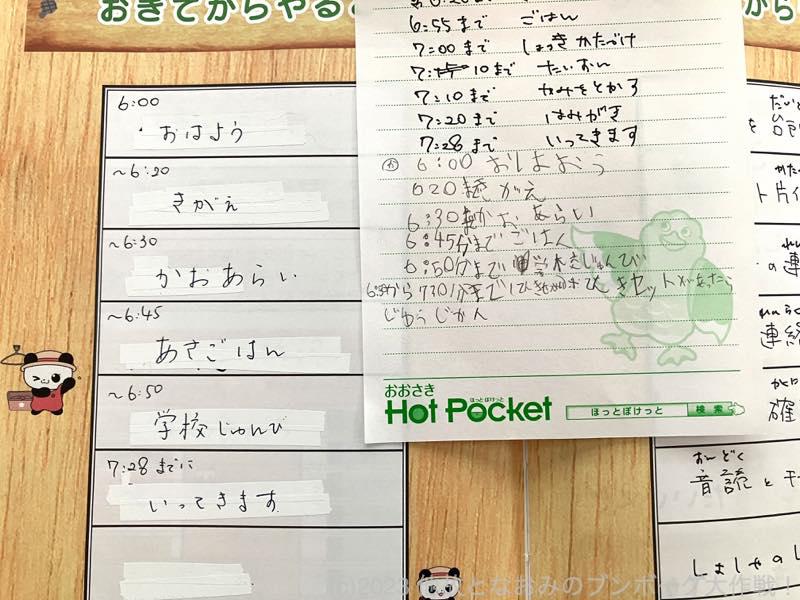 おきてからやる
6:00
おはよう
~6:20
きがえ
~6:30
かおあらい
~6:45
あさごはん
~6:50
学校じゅんび
7:28までに
いってきます
6:55まで ごはん
7:00まで しょっき かたづけ
7:10まで たいおん
7:10まで かみをとかす
7:20まで はみがき
7:28まで いってきます
6:00 おはよおう
620 きがえ
6:30 かお あらい
6:45分まで ごはん
6:50分まで 学校じゅんび
じゆうじかん
おおさき
ほっとぽけっと
Hot Pocket
ほっとぽけっと 検索
を
ト
の連
れんらく
連絡
確
おんどく
音読と
(c)2023
となおみのブンボーグ大作戦！